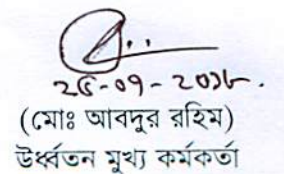 ২৫-০৭-২০১৮.
(মোঃ আবদুর রহিম)
উর্ধ্বতন মুখ্য কর্মকর্তা